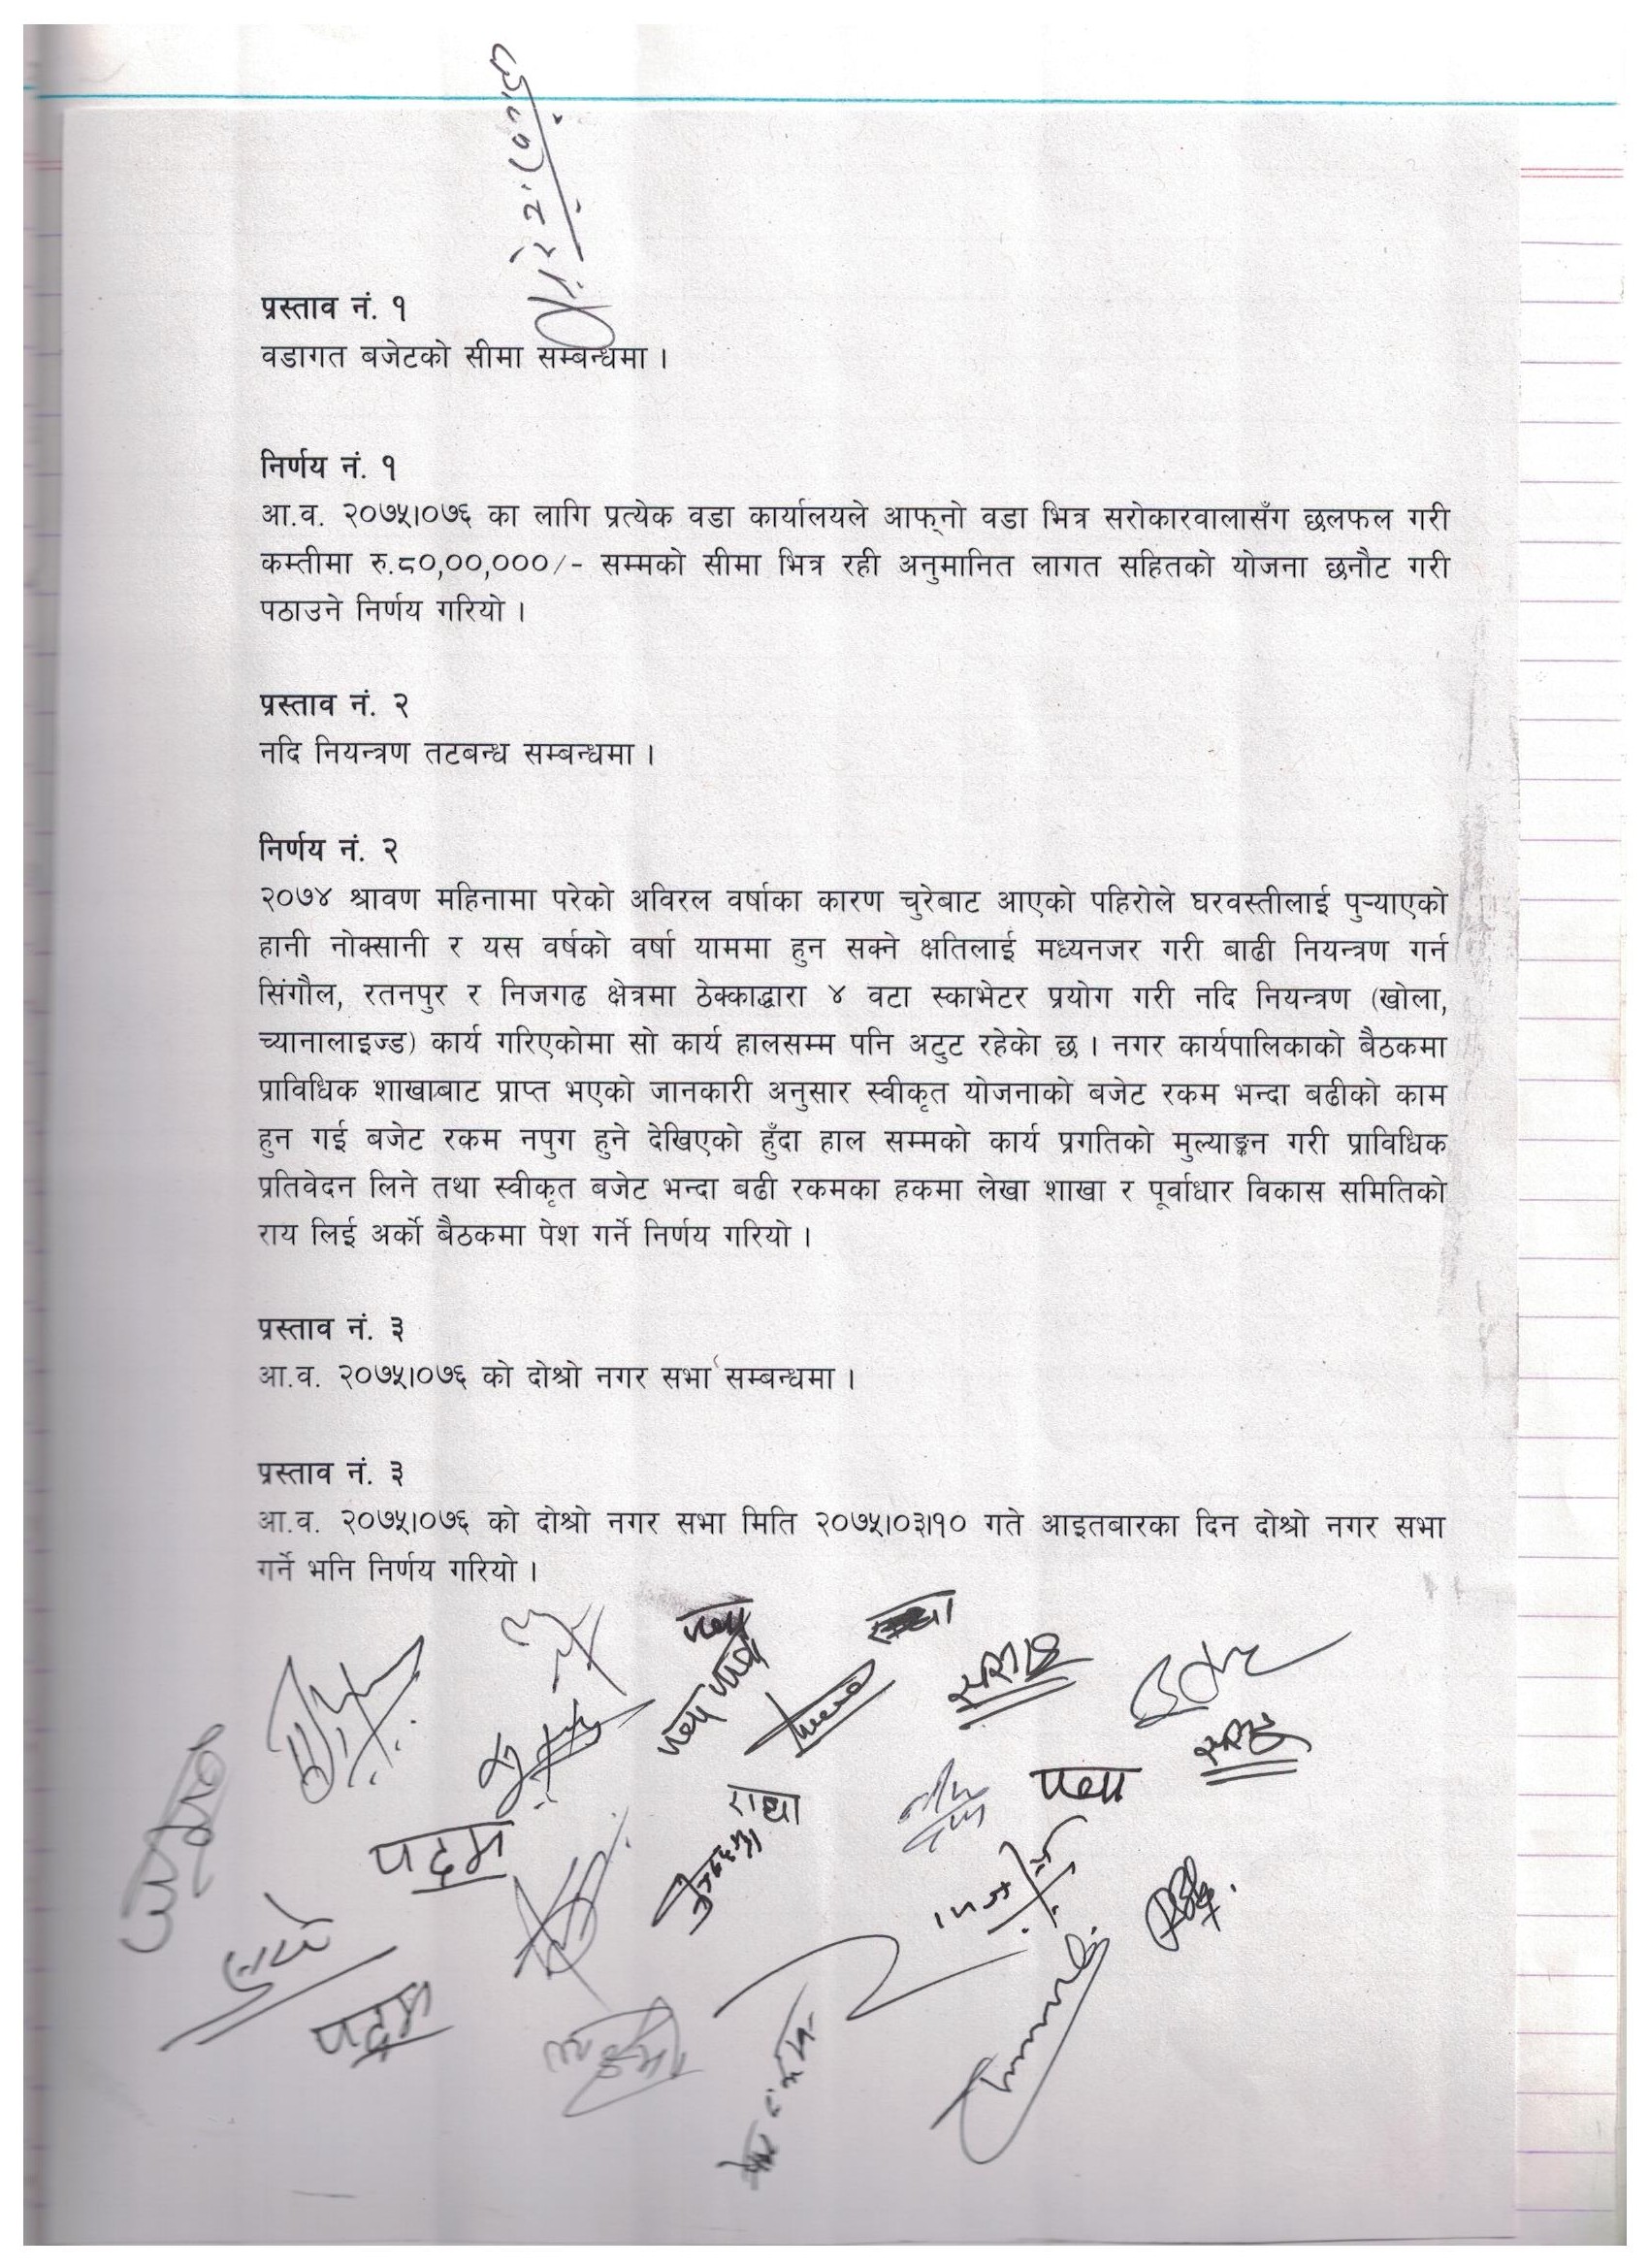 प्रस्ताव नं. १
वडागत बजेटको सीमा सम्बन्धमा ।
निर्णय नं. १
आ.व. २०७५।०७६ का लागि प्रत्येक वडा कार्यालयले आफ्नो वडा भित्र सरोकारवालासँग छलफल गरी
कम्तीमा रु.८०,००,०००/- सम्मको सीमा भित्र रही अनुमानित लागत सहितको योजना छनौट गरी
पठाउने निर्णय गरियो ।
प्रस्ताव नं. २
नदि नियन्त्रण तटबन्ध सम्बन्धमा ।
निर्णय नं. २
२०७४ श्रावण महिनामा परेको अविरल वर्षाका कारण चुरेबाट आएको पहिरोले घरवस्तीलाई पुर्‍याएको
हानी नोक्सानी र यस वर्षको वर्षा याममा हुन सक्ने क्षतिलाई मध्यनजर गरी बाढी नियन्त्रण गर्न
सिंगौल, रतनपुर र निजगढ क्षेत्रमा ठेक्काद्धारा ४ वटा स्काभेटर प्रयोग गरी नदि नियन्त्रण (खोला,
च्यानालाइज्ड) कार्य गरिएकोमा सो कार्य हालसम्म पनि अटुट रहेको छ । नगर कार्यपालिकाको बैठकमा
प्राविधिक शाखाबाट प्राप्त भएको जानकारी अनुसार स्वीकृत योजनाको बजेट रकम भन्दा बढीको काम
हुन गई बजेट रकम नपुग हुने देखिएको हुँदा हाल सम्मको कार्य प्रगतिको मुल्याङ्कन गरी प्राविधिक
प्रतिवेदन लिने तथा स्वीकृत बजेट भन्दा बढी रकमका हकमा लेखा शाखा र पूर्वाधार विकास समितिको
राय लिई अर्को बैठकमा पेश गर्ने निर्णय गरियो ।
प्रस्ताव नं. ३
आ.व. २०७५।०७६ को दोश्रो नगर सभा सम्बन्धमा ।
प्रस्ताव नं. ३
आ.व. २०७५।०७६ को दोश्रो नगर सभा मिति २०७५।०३।१० गते आइतबारका दिन दोश्रो नगर सभा
गर्ने भनि निर्णय गरियो ।
राधा
पदम
पदम